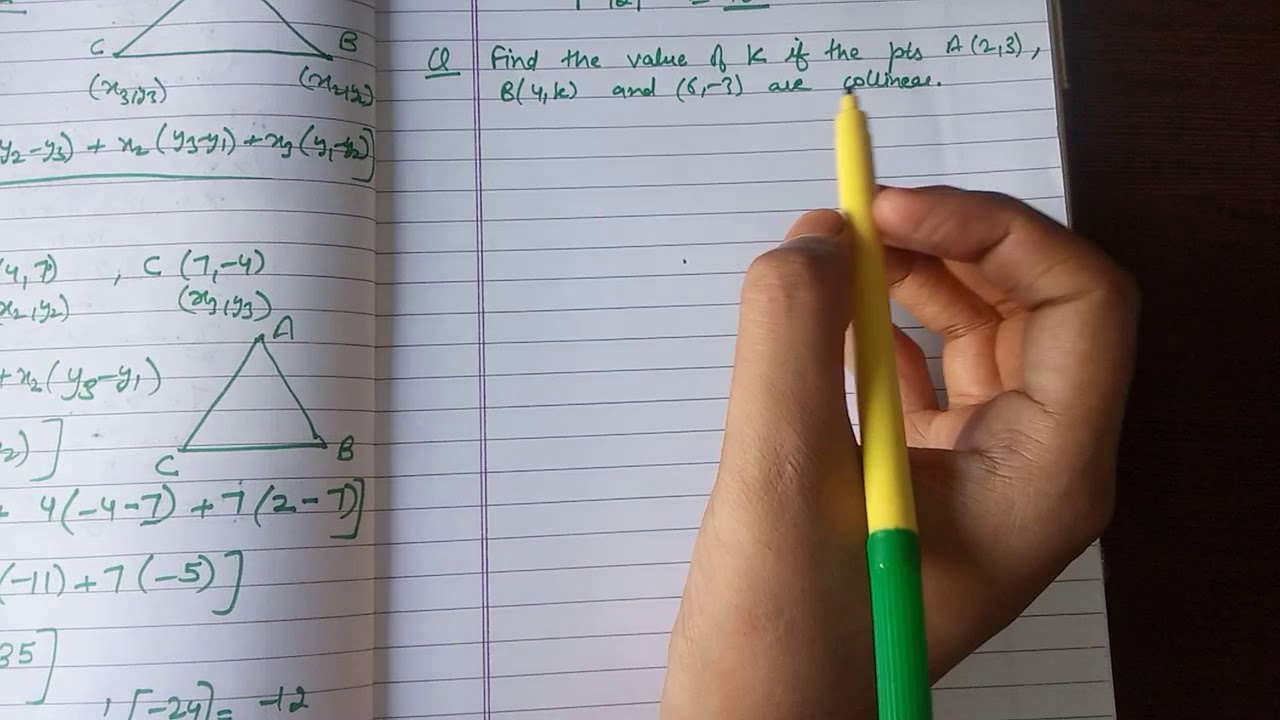 C
B
(x₃,y₃)
(x₂,y₂)
y₂-y₃) + x₂(y₃-y₁) + x₃(y₁-y₂)]
4,7) , C (7,-4)
x₂,y₂) (x₃,y₃)
A
+ x₂(y₃-y₁)
2)]
C
B
4(-4-7) + 7(2-7)]
(-11) + 7(-5)]
35]
[-24] = -12
Q Find the value of K if the pts A(2,3),
B(4,k) and (6,-3) are collinear.